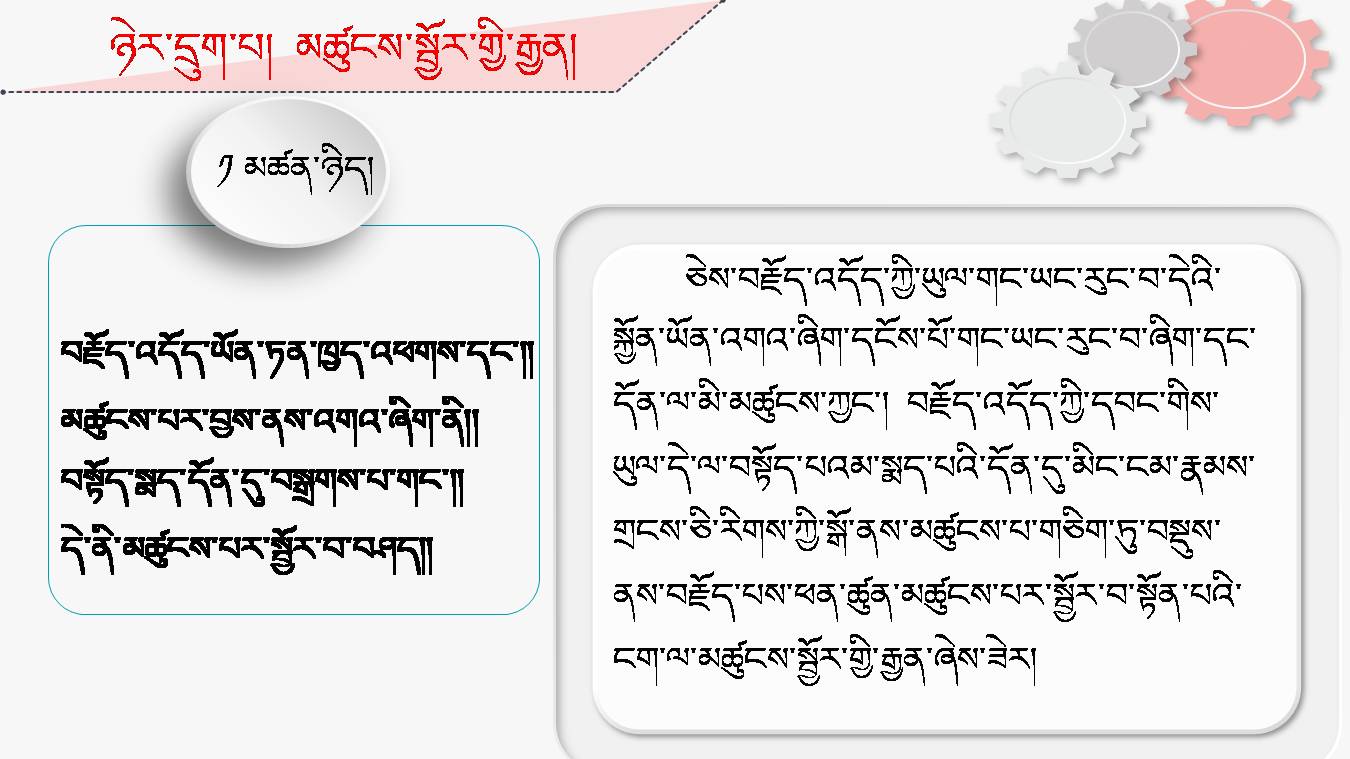 ཉེར་དྲུག་པ། མཚུངས་སྦྱོར་གྱི་རྒྱན།
༡ མཚན་ཉིད།
བརྗོད་འདོད་ཡོན་ཏན་ཁྱད་འཕགས་དང་།།
མཚུངས་པར་བྱས་ནས་འགའ་ཞིག་ནི།།
བསྟོད་སྨད་དོན་དུ་བསྒྲགས་པ་གང་།།
དེ་ནི་མཚུངས་པར་སྦྱོར་བ་བཤད།།
ཅེས་བརྗོད་འདོད་ཀྱི་ཡུལ་གང་ཡང་རུང་བ་དེའི་
སྐྱོན་ཡོན་འགའ་ཞིག་དངོས་པོ་གང་ཡང་རུང་བ་ཞིག་དང་
དོན་ལ་མི་མཚུངས་ཀྱང་། བརྗོད་འདོད་ཀྱི་དབང་གིས་
ཡུལ་དེ་ལ་བསྟོད་པའམ་སྨད་པའི་དོན་དུ་མིང་ངམ་རྣམས་
གྲངས་ཅི་རིགས་ཀྱི་སྒོ་ནས་མཚུངས་པ་གཅིག་ཏུ་བསྡུས་
ནས་བརྗོད་པས་ཕན་ཚུན་མཚུངས་པར་སྦྱོར་བ་སྟོན་པའི་
ངག་ལ་མཚུངས་སྦྱོར་གྱི་རྒྱན་ཞེས་ཟེར།